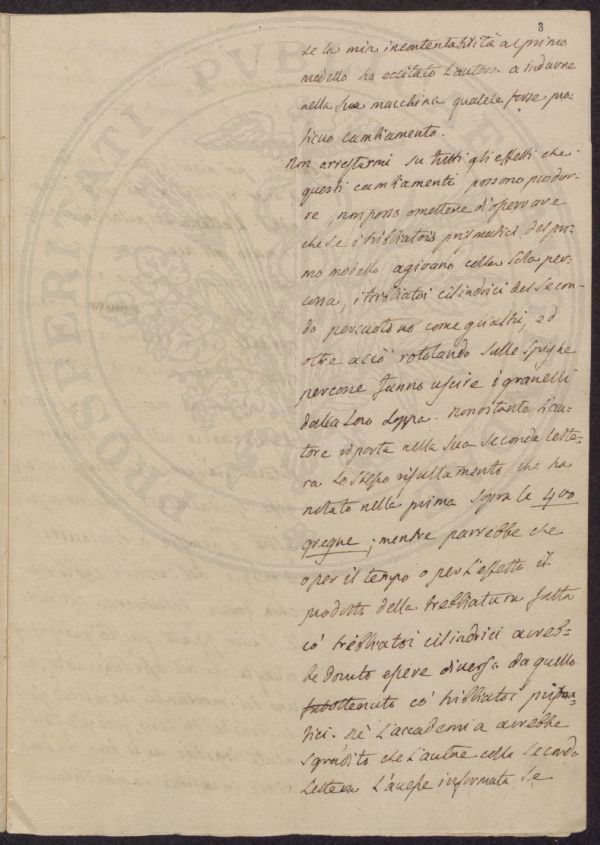 8
se la mia incontentabilità al primo
modello ha eccitato l'autore a indurne
nella sua macchina qualche forse pro-
ficuo cambiamento.
Non arrestarmi su tutti gli effetti che
questi cambiamenti possono produr-
re, non posso omettere d'osservare
che se i tribbiatoi prismatici del pri-
mo modello agivano colla sola per-
cossa, i tribbiatoi cilindrici del secon-
do percuotono come gli altri, ed
oltre a ciò rotolando sulle spighe
percosse fanno uscire i granelli
dalla loro loppa. Nonostante l'au-
tore riporta nella sua seconda lette-
ra lo stesso risultamento che ha
notato nella prima sopra le 400
gregne; mentre parrebbe che
o per il tempo o per l'effetto il
prodotto della trebbiatura fatta
co' trebbiatoi cilindrici avreb-
be dovuto essere diverso da quello
ottenuto co' tribbiatoi prisma-
tici. Nè l'accademia avrebbe
sgradito che l'autore colla seconda
lettera l'avesse informata se
PROSPERITATI PUBLICAE